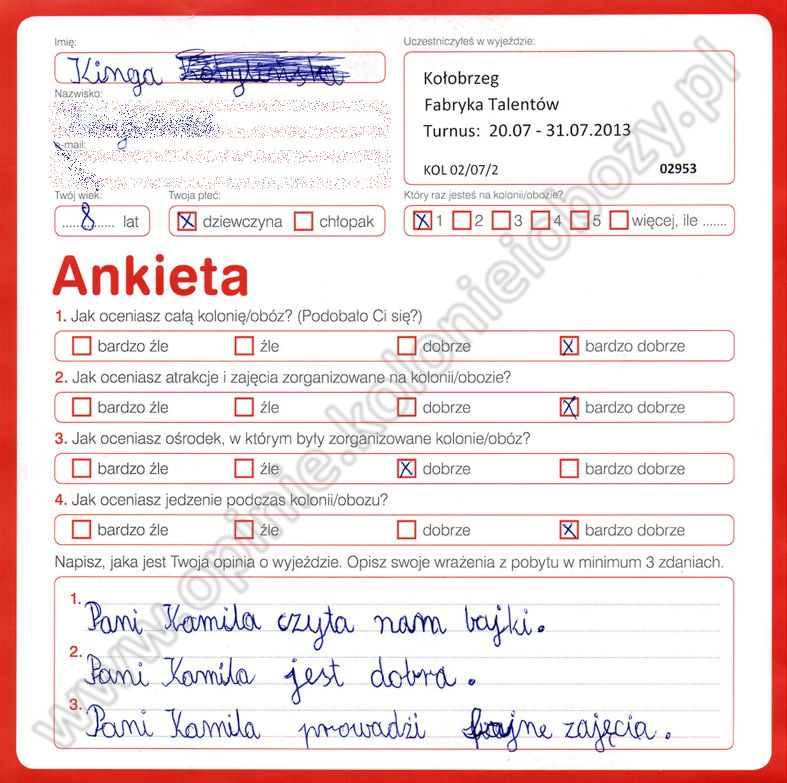 Imię:
Kinga
Nazwisko:
e-mail:
Twój wiek:
8 lat
Twoja płeć:
x dziewczyna chłopak
Uczestniczyłeś w wyjeździe:
Kołobrzeg
Fabryka Talentów
Turnus: 20.07 - 31.07.2013
KOL 02/07/2 02953
Który raz jesteś na kolonii/obozie?
x 1 2 3 4 5 więcej, ile .......
Ankieta
1. Jak oceniasz całą kolonię/obóz? (Podobało Ci się?)
bardzo źle źle dobrze x bardzo dobrze
2. Jak oceniasz atrakcje i zajęcia zorganizowane na kolonii/obozie?
bardzo źle źle dobrze x bardzo dobrze
3. Jak oceniasz ośrodek, w którym były zorganizowane kolonie/obóz?
bardzo źle źle x dobrze bardzo dobrze
4. Jak oceniasz jedzenie podczas kolonii/obozu?
bardzo źle źle dobrze x bardzo dobrze
Napisz, jaka jest Twoja opinia o wyjeździe. Opisz swoje wrażenia z pobytu w minimum 3 zdaniach.
1. Pani Kamila czyta nam bajki.
2. Pani Kamila jest dobra.
3. Pani Kamila prowadzi fajne zajęcia.
www.opinie.kolonieiobozy.pl